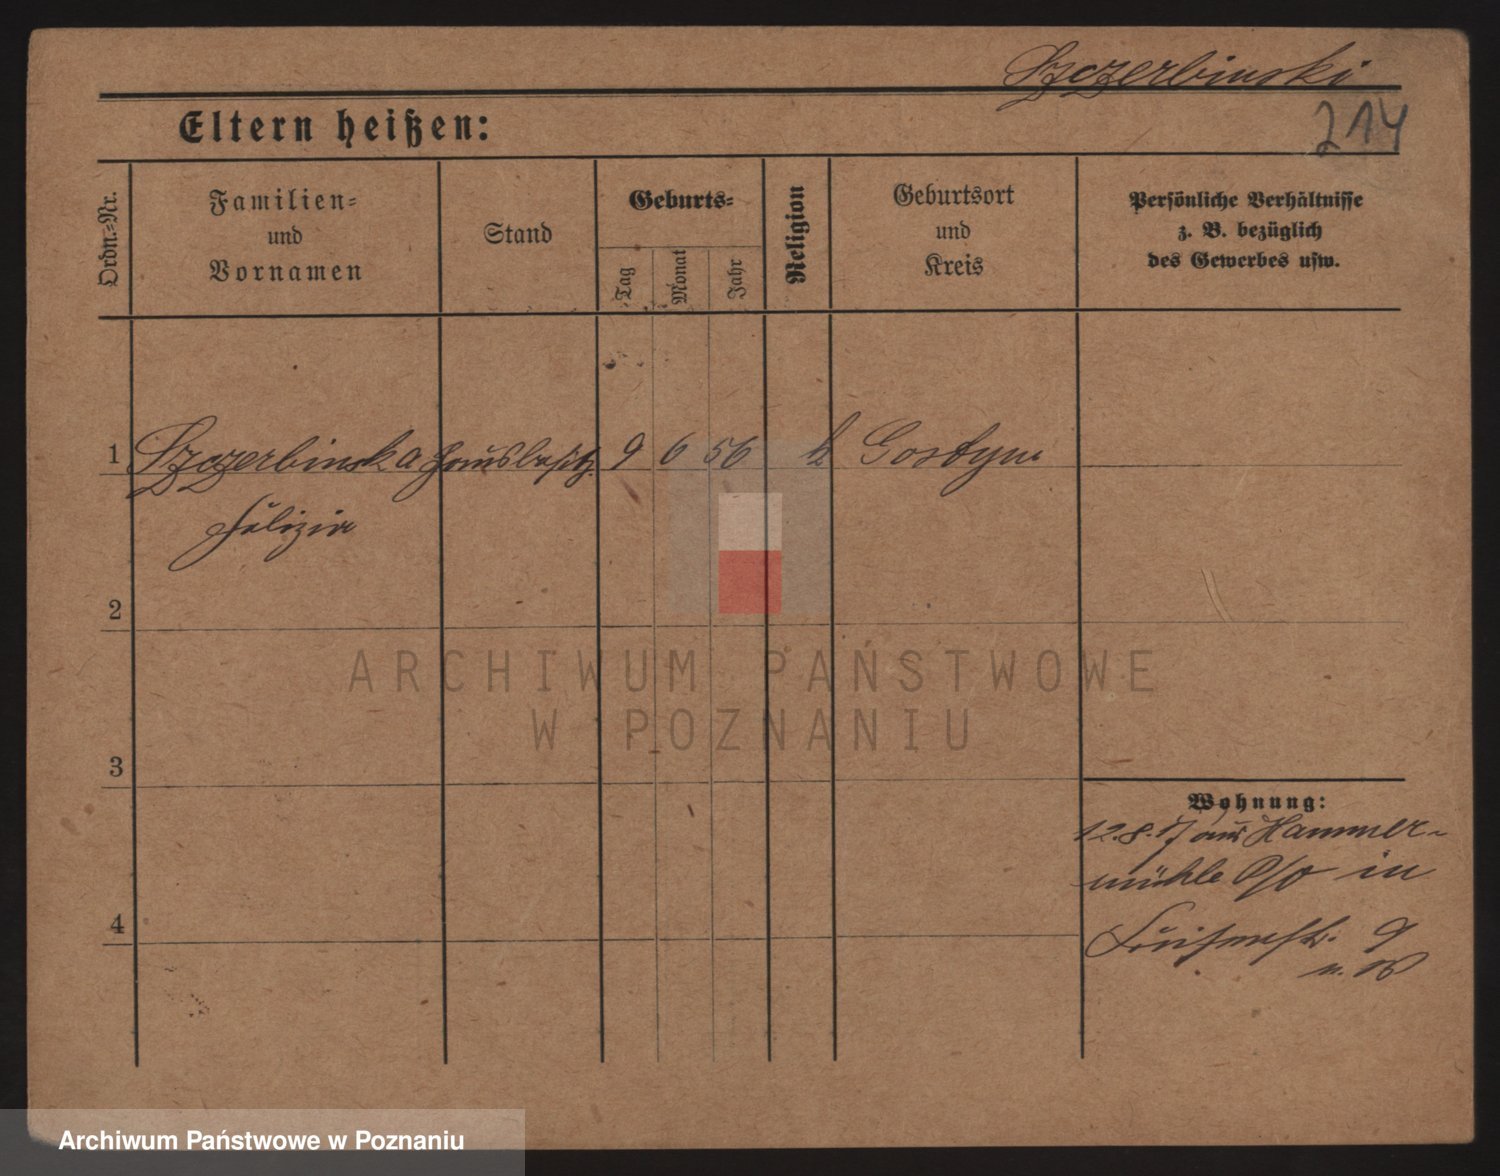 Szczerbinski
Eltern heißen:
214
Ordn.-Nr.
Familien-
und
Vornamen
Stand
Geburts-
Tag
Monat
Jahr
Religion
Geburtsort
und
Kreis
Persönliche Verhältnisse
z. B. bezüglich
des Gewerbes usw.
1 Szczerbinska Hausbesitz. 9 6 56 k Gostyn
Felizia
2
3
4
Wohnung:
12.8.17 aus Hammer-
mühle in
9
ARCHIWUM PAŃSTWOWE
W POZNANIU
Archiwum Państwowe w Poznaniu